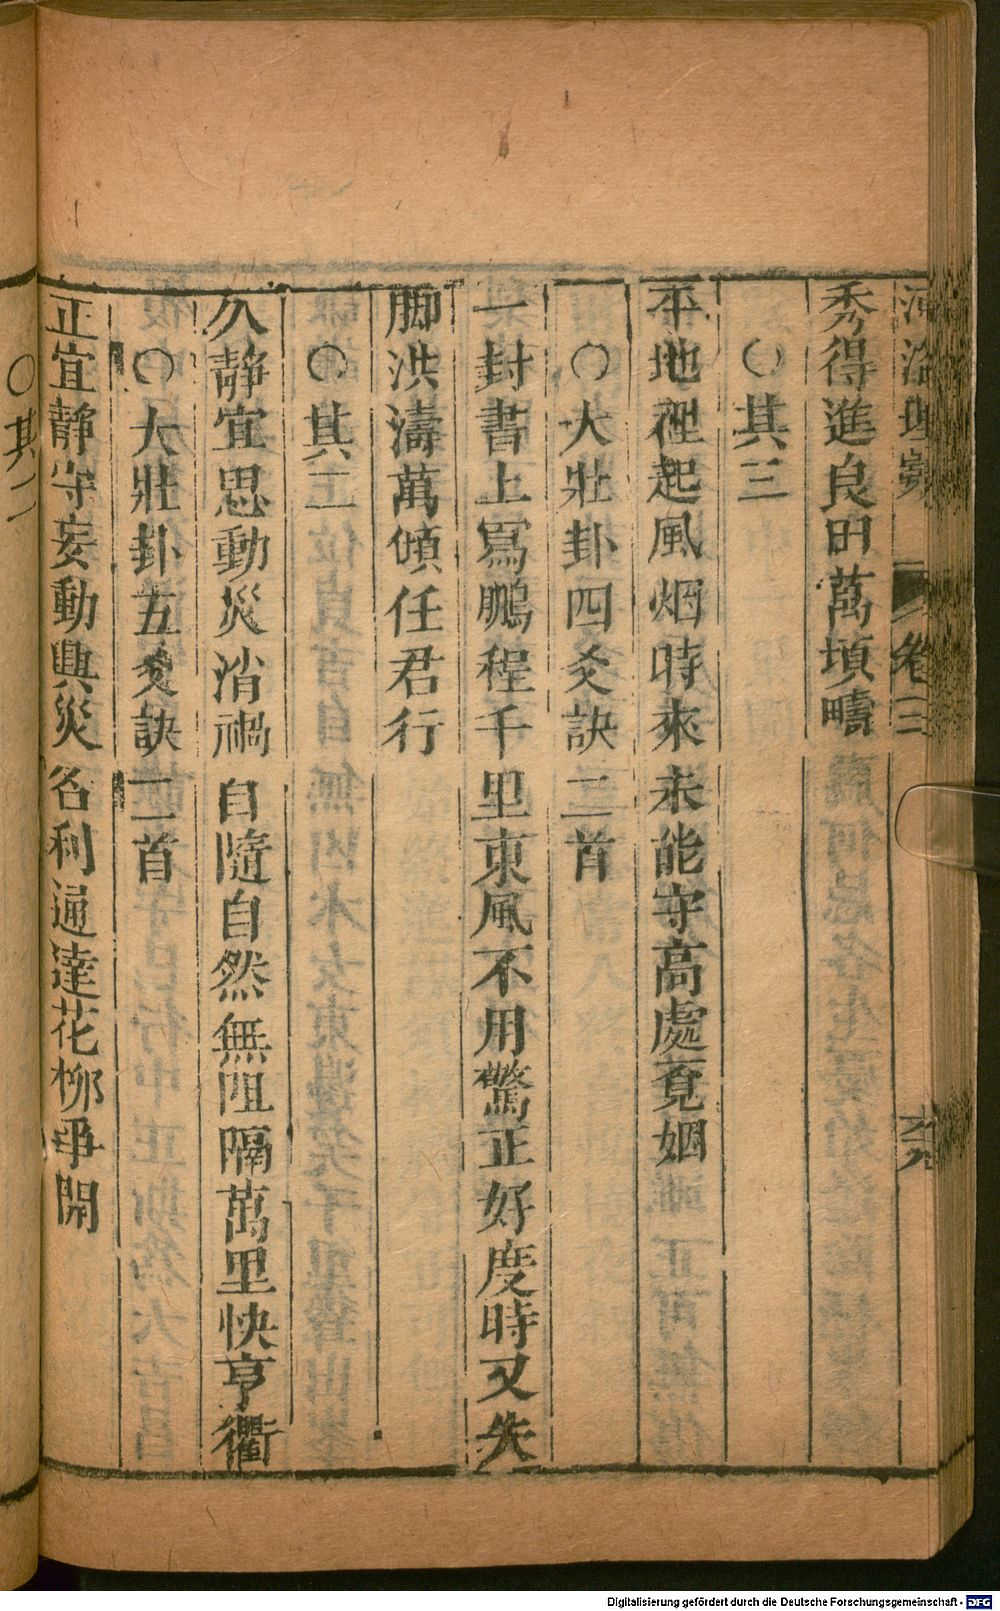 河洛理數 卷三 六九
秀得進良田萬頃疇
○其三
平地裡起風烟時來 未能守高處覓姻
○大壯卦四爻訣 二首
一封書上寫鵬程千里東風不用驚正好度時又失
脚洪濤萬傾任君行
○其二
久靜宜思動災消禍 自隨自然無阻隔萬里快亨衢
○大壯卦五爻訣 二首
正宜靜守妄動興災 名利通達花柳爭開
○其二
Digitalisierung gefördert durch die Deutsche Forschungsgemeinschaft - DFG